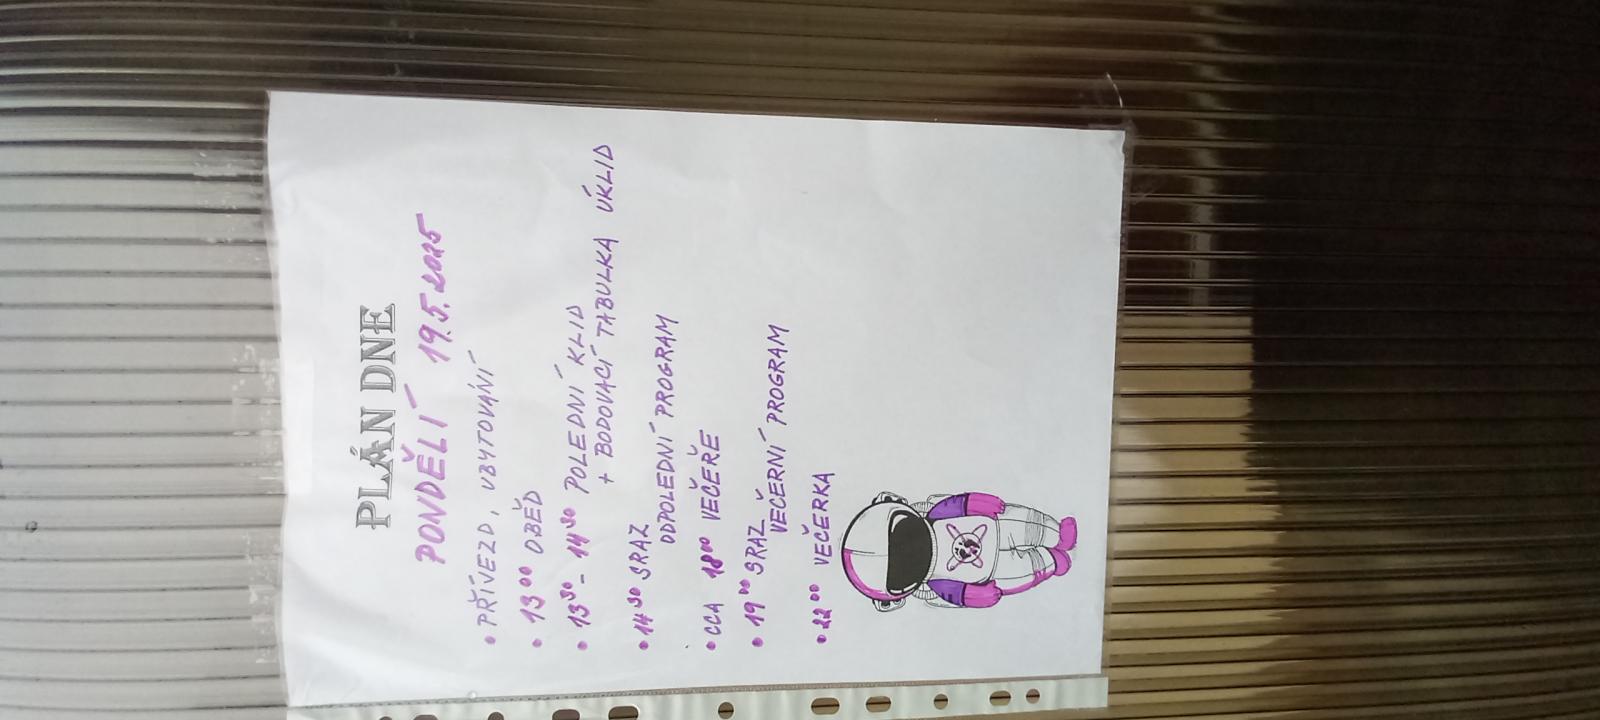 PLÁN DNE
PONDĚLÍ 19.5.2025
• PŘÍJEZD, UBYTOVÁNÍ
• 13⁰⁰ OBĚD
• 13³⁰ - 14³⁰ POLEDNÍ KLID
+ BODOVACÍ TABULKA ÚKLID
• 14³⁰ SRAZ
ODPOLEDNÍ PROGRAM
• CCA 18⁰⁰ VEČEŘE
• 19⁰⁰ SRAZ
VEČERNÍ PROGRAM
• 22⁰⁰ VEČERKA